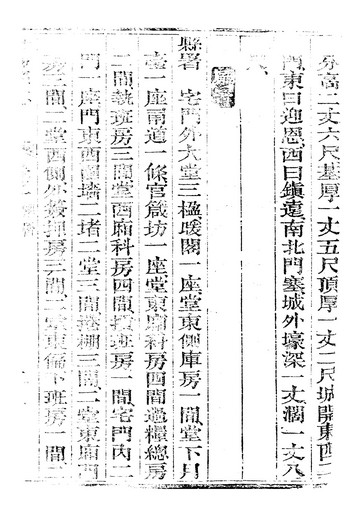 分高二丈六尺基厚一丈五尺頂厚一丈二尺城開東西二
門東曰迎恩西曰鎮遠南北門塞城外壕深一丈濶一丈八
尺
縣署 宅門外大堂三楹暖閣一座堂東側庫房一間堂下月
臺一座甬道一條官箴坊一座堂東廂科房四間過糧總房
二間執班房三間堂西廂科房四間 班房一間宅門內二
門一座門東西面墻二堵二堂三間捲棚三間二堂東廂西
二間二堂西側外簽押房三間二堂東 下班房一間二